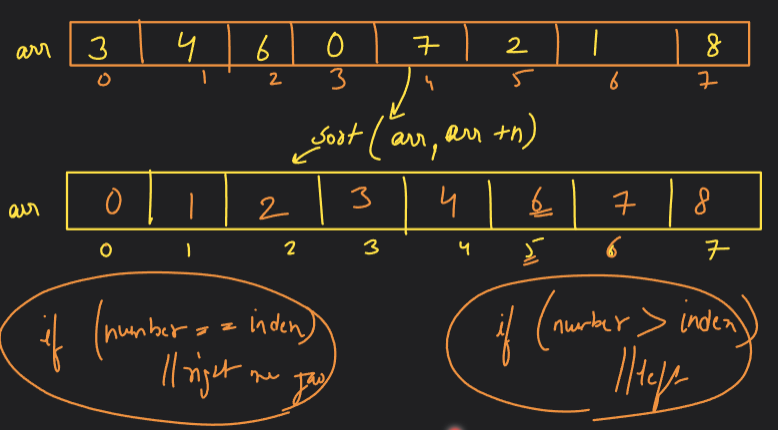 arr 3 4 6 0 7 2 1 8
0 1 2 3 4 5 6 7
sort (arr, arr +n)
arr 0 1 2 3 4 6 7 8
0 1 2 3 4 5 6 7
if (number == index)
// right me jao
if (number > index)
// left